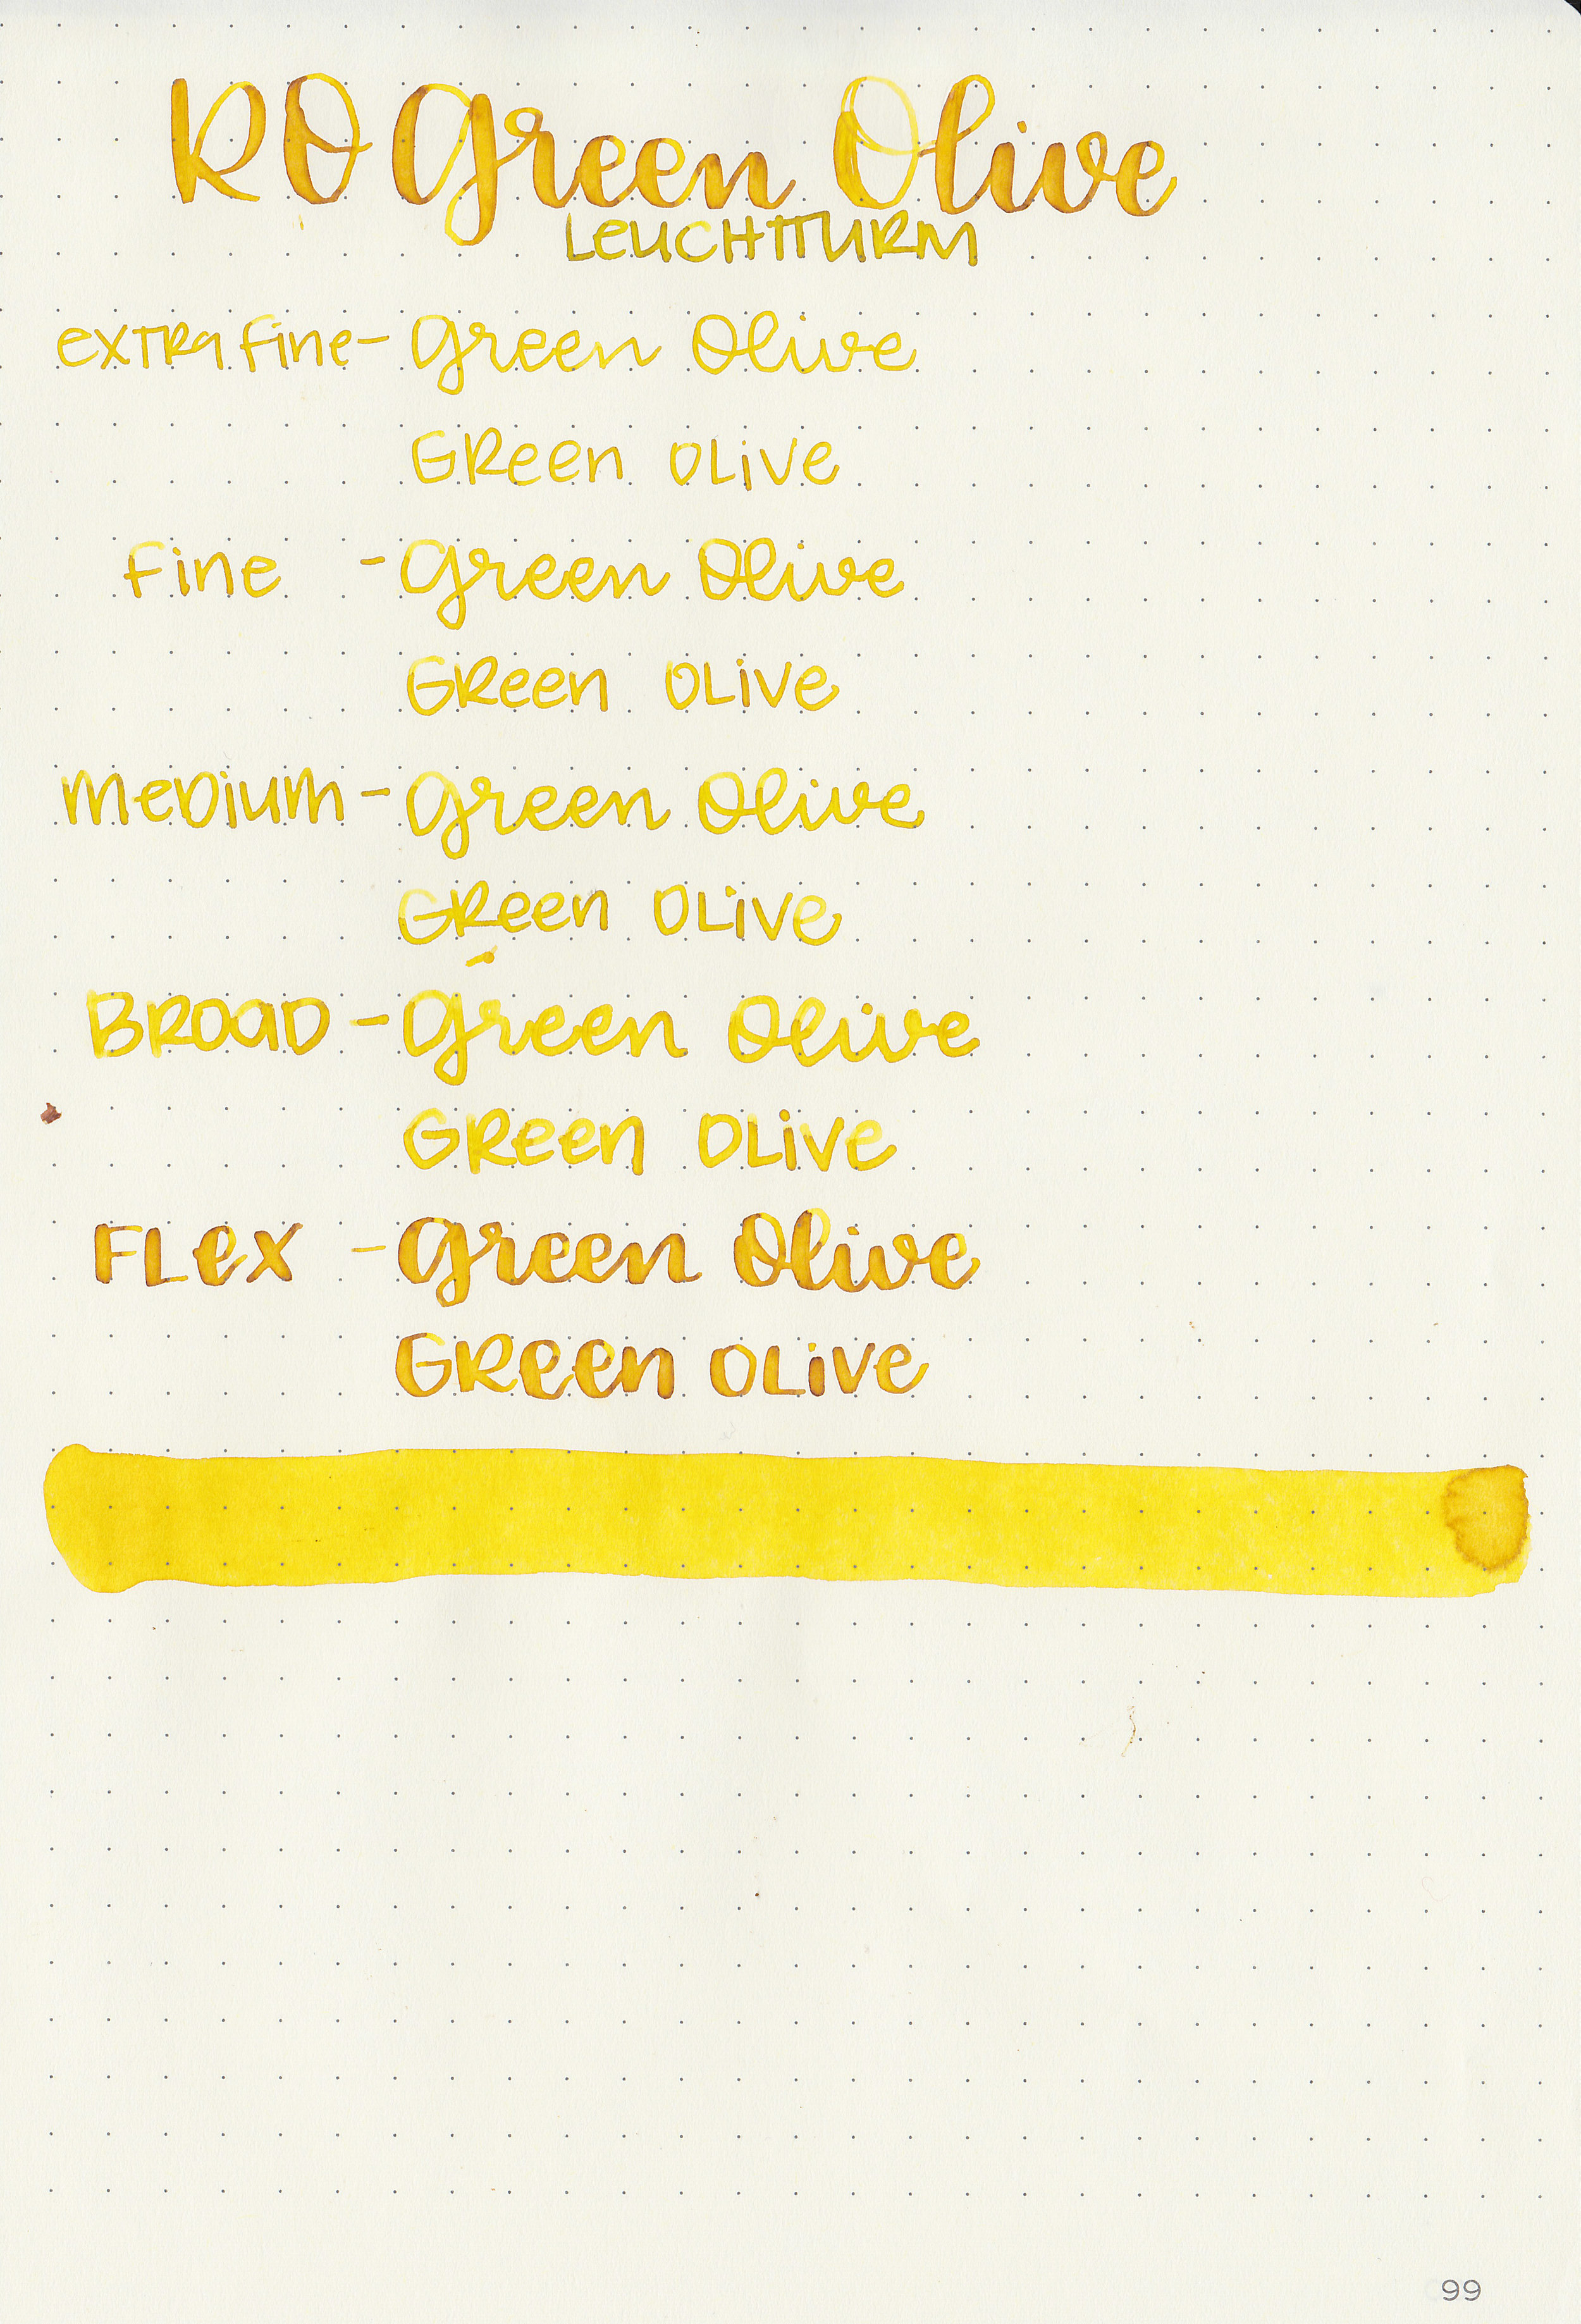 RO Green Olive
LEUCHTTURM
extra fine - Green Olive
Green Olive
Fine - Green Olive
Green Olive
Medium - Green Olive
Green Olive
Broad - Green Olive
Green Olive
Flex - Green Olive
Green Olive
99